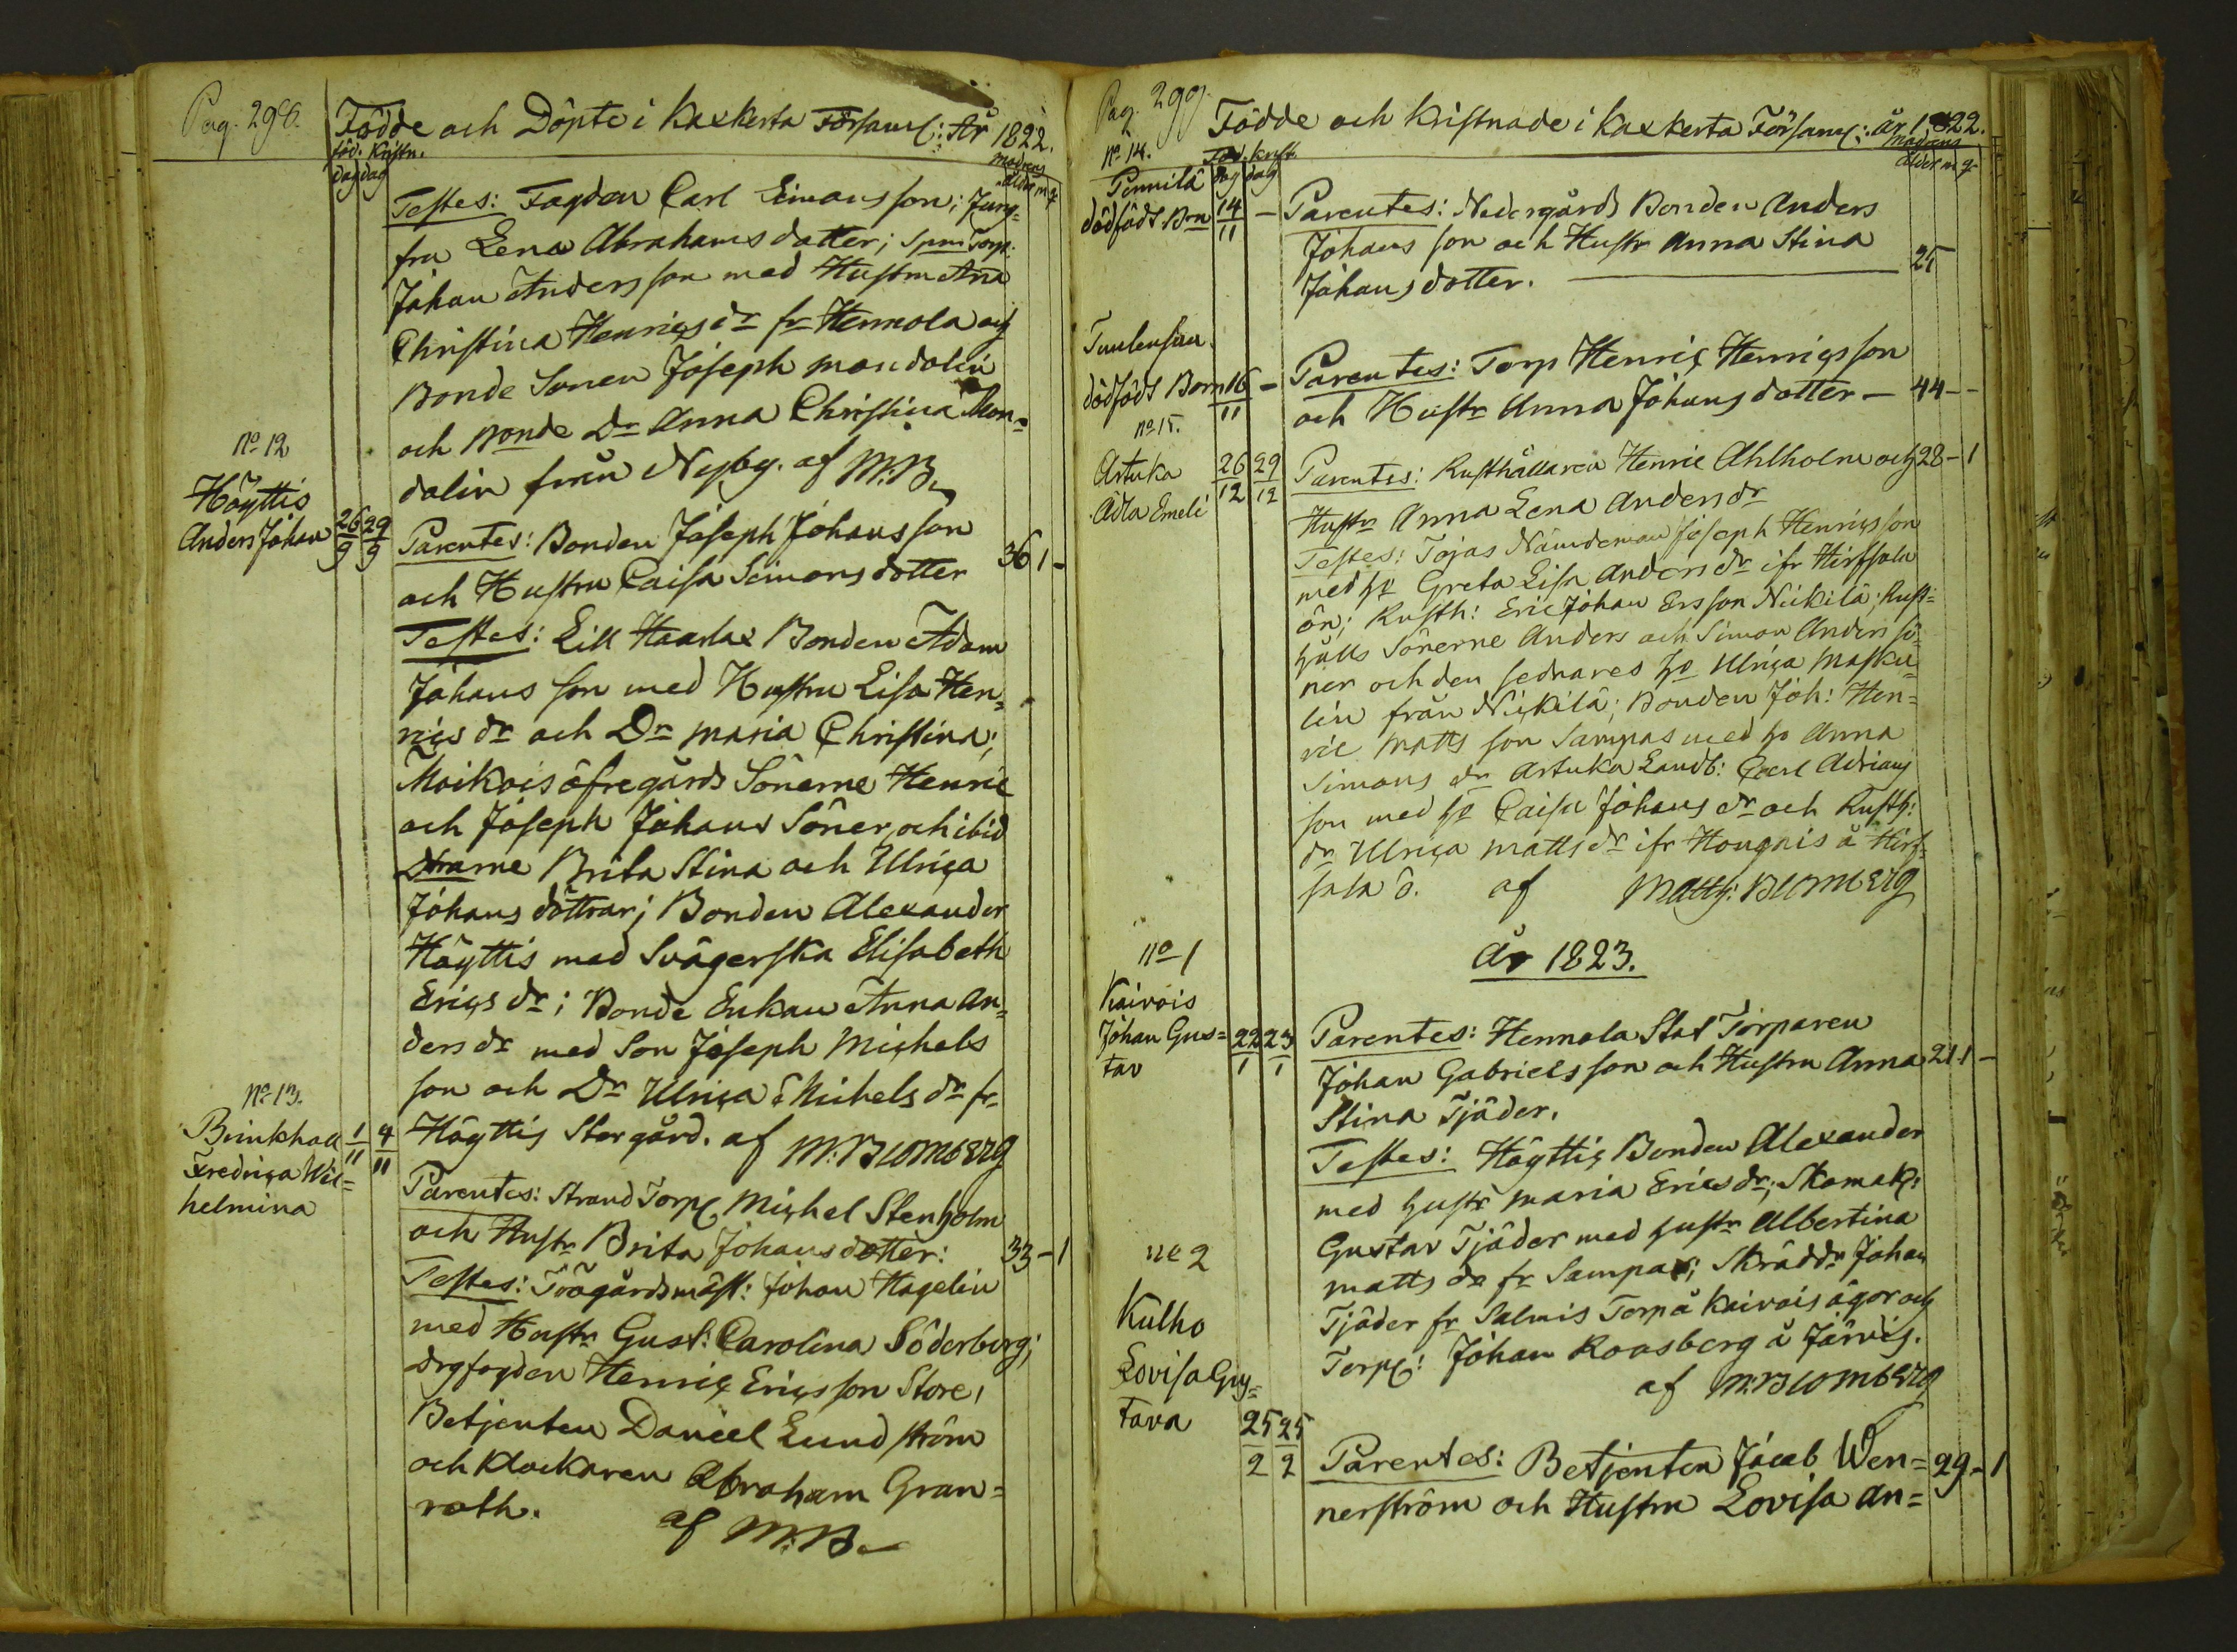 Pag. 298.
Födde och Döpte i Kaxkerta Församl: År 1822.
föd. Kristn.
dag dag
modrens
ålder m q
Testes: Fogden Carl Simonsson; Jung-
fru Lena Abrahamsdotter; Torp:
Johan Andersson med Hustru Ana
Christina Henricsdr fr Hennola och
Bonde Sonen Joseph Mandolin
och Bonde Dr Anna Christina Man-
dolin från Nyby. af M:B.
No 12
Höyttis
Anders Johan 26/9 29/9
Parentes: Bonden Joseph Johansson
och Hustru Caisa Simonsdotter 36 1 -
Testes: Lill Haarlax Bonden Adam
Johansson med Hustru Lisa Hen-
ricsdr och Dr Maria Christina;
Moikois öfregårds Sönerne Henric
och Joseph Johans Söner, och ibid
Drarne Brita Stina och Ulrica
Johansdöttrar; Bonden Alexander
Höyttis med Svägerska Elisabeth
Ericsdr; Bonde Enkan Anna An-
dersdr med Son Joseph Michels
son och Dr Ulrica Michelsdr fr
Höyttis Storgård. af M:Blomberg
No 13.
Brinkhall 1/11 4/11
Fredrica Wil-
helmina
Parentes: Strand Torp: Michel Stenholm
och Hustr Brita Johansdotter: 33 - 1
Testes: Trägårdsmäst: Johan Hagelin
med Hustr Gust: Carolina Söderberg;
Drgfogden Henric Ericsson Store,
Betjenten Daniel Lundström
och Klockaren Abraham Gran-
roth. af M:B.
Pag. 299.
Födde och Kristnade i Kaxkerta Församl: år 1822.
No 14. Föd. krist.
dag dag
Modrens
ålder m q
Pennilä
dödfödt Brn 14/11 -
Parentes: Nedergårds Bonden Anders
Johansson och Hustr Anna Stina
Johansdotter. 25
dödfödt Barn 16/11 -
Parentes: Torp Henric Henricsson
och Hustr Anna Johansdotter - 44 - -
No 15.
Artuka 26/12 29/12
Adla Emeli
Parentes: Rusthållaren Henric Ahlholm och 28 - 1
Hustr Anna Lena Andersdr
Testes: Tojas Nämndeman Joseph Henricsson
med ho Greta Lisa Andersdr ifr Hirfsala
ön; Rusth: Eric Johan Ersson Nickilä; Rust-
hålls Sönerne Anders och Simon Anders sö-
ner och den sednares ho Ulrica Masku-
lin från Nickilä; Bonden Joh: Hen-
ric Mattsson Sampas med ho Anna
Simonsdr Artuka Landb: Carl Adrians
son med ho Caisa Johansdr och Rusth:
dr Ulrica Mattsdr ifr Hougnis å Hirf-
sala ö. af Matth: Blomberg
År 1823.
No 1
Kaivois
Johan Gus- 22/1 23/1
tav
Parentes: Hennola Stat Torparen
Johan Gabrielsson och Hustru Anna 21 1 -
Stina Tjäder.
Testes: Höyttis Bonden Alexander
med hustr Maria Ericsdr; Skomak:
Gustav Tjäder med hustr Albertina
Mattsdr fr Sampas; Skräddr Johan
Tjäder fr Salmis Torp å Kaivois ägor och
Torp: Johan Roosberg å Järvis.
af M:Blomberg
No 2
Kulho
Lovisa Gus-
tava 25/2 25/2
Parentes: Betjenten Jacob Wen- 29 - 1
nerström och Hustru Lovisa An-